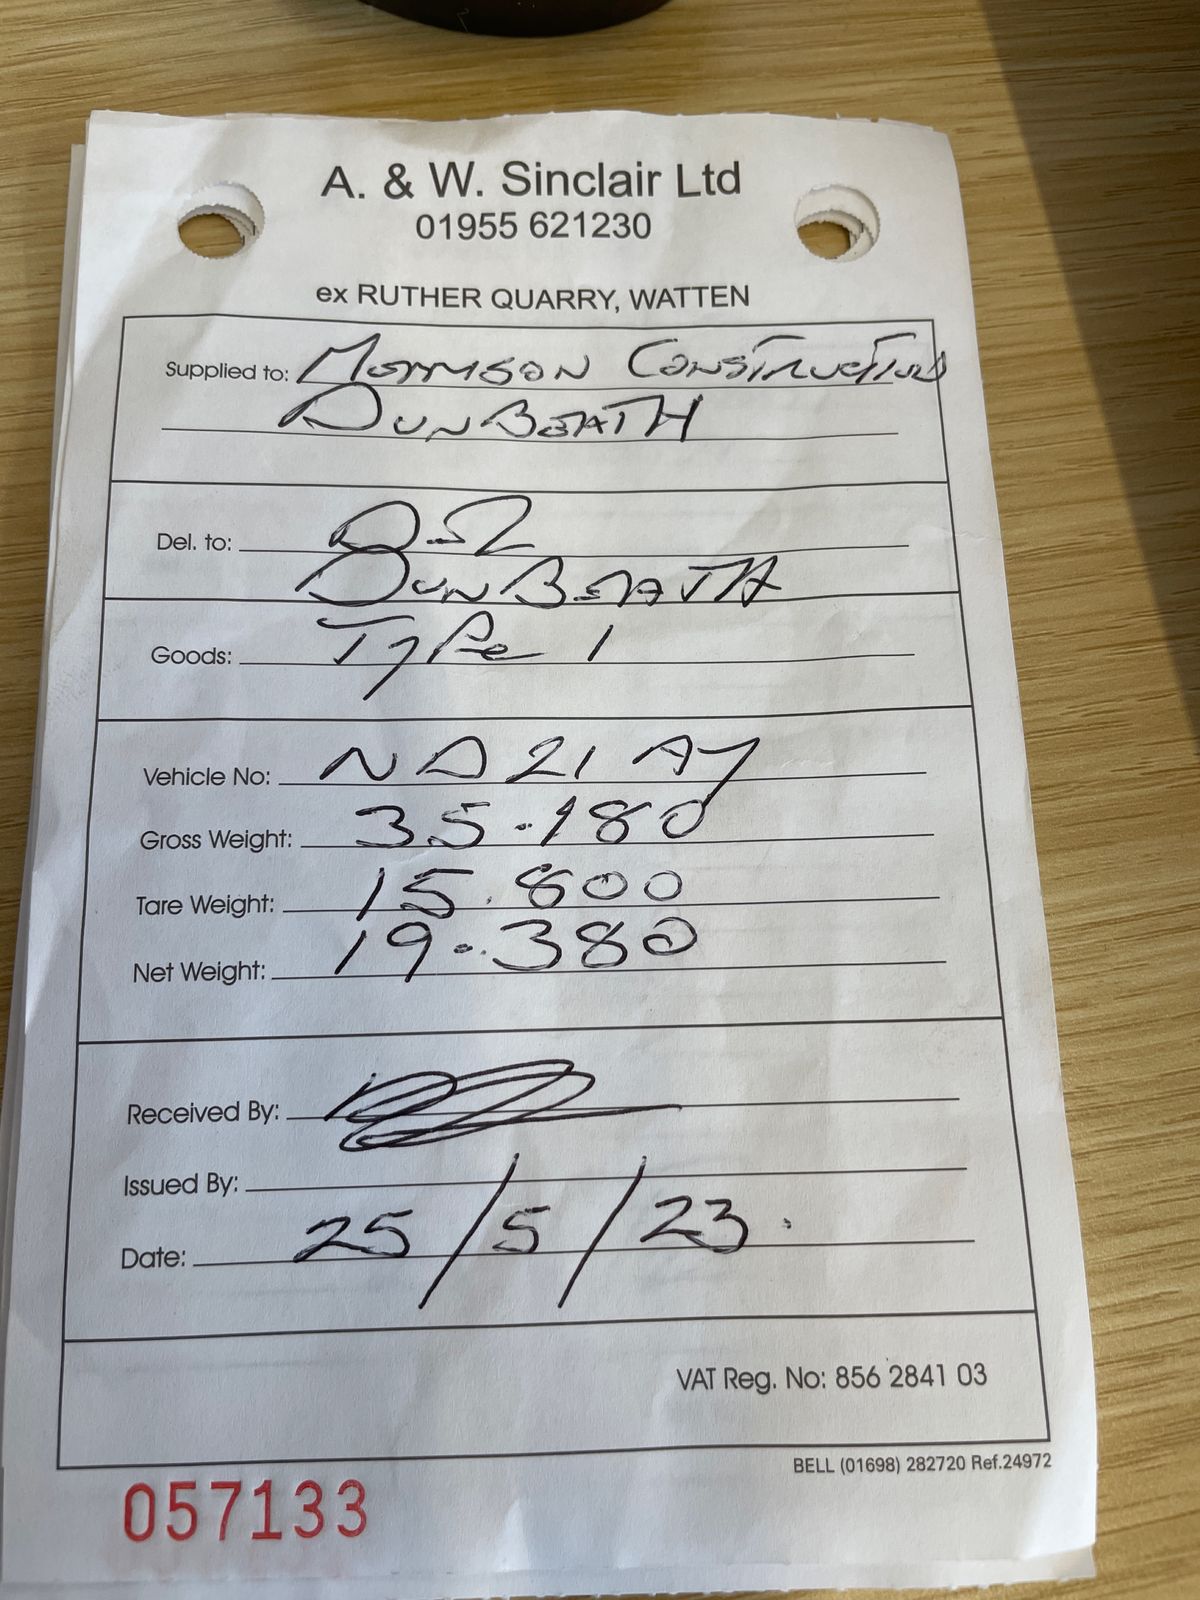 A. & W. Sinclair Ltd
01955 621230
ex RUTHER QUARRY, WATTEN
Supplied to: MORRISON CONSTRUCTION
DUNBEATH
Del. to:
DUNBEATH
Goods: Type 1
Vehicle No: ND 21 AY
Gross Weight: 35.180
Tare Weight: 15.800
Net Weight: 19.380
Received By:
Issued By:
Date: 25/5/23.
VAT Reg. No: 856 2841 03
BELL (01698) 282720 Ref.24972
057133